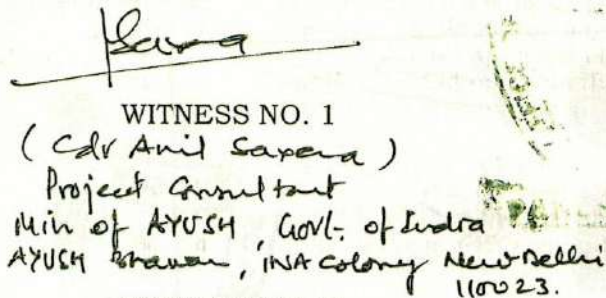 WITNESS NO. 1
( Cdr Anil Saxena )
Project Consultant
Min of AYUSH, Govt. of India
AYUSH Bhawan, INA Colony New Delhi
110023.